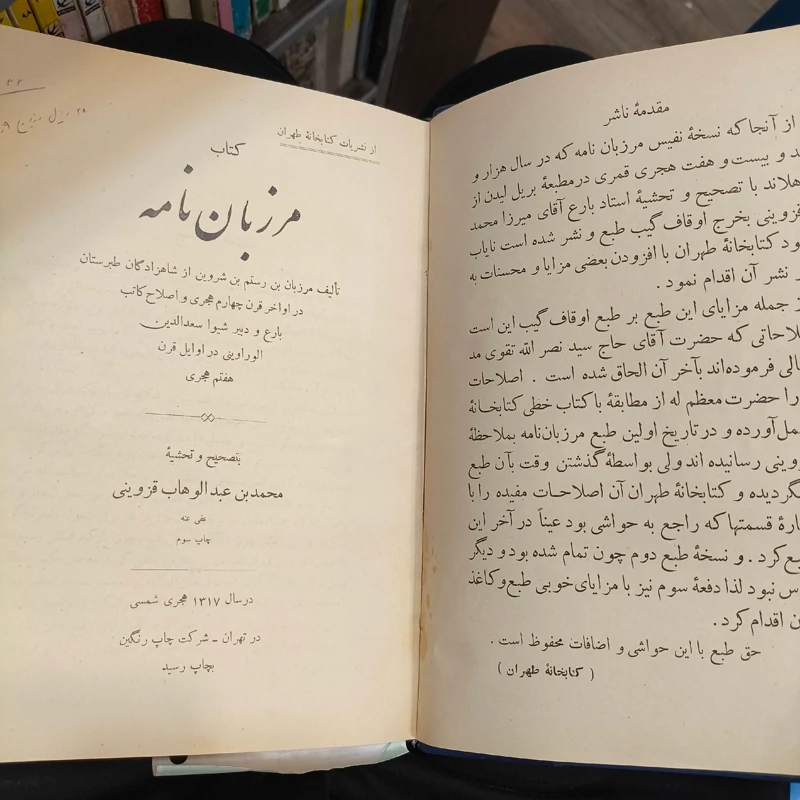 از نشریات کتابخانهٔ طهران
کتاب
مرزبان نامه
تألیف مرزبان بن رستم بن شروین از شاهزادگان طبرستان
در اواخر قرن چهارم هجری و اصلاح کاتب
بارع و دبیر شیوا سعدالدین
الوراوینی در اوایل قرن
هفتم هجری
بتصحیح و تحشیهٔ
محمد بن عبدالوهاب قزوینی
عفی عنه
چاپ سوم
در سال ۱۳۱۷ هجری شمسی
در تهران ـ شرکت چاپ رنگین
بچاپ رسید
مقدمهٔ ناشر
از آنجا که نسخهٔ نفیس مرزبان نامه که در سال هزار و
و بیست و هفت هجری قمری در مطبعهٔ بریل لیدن از
هلاند با تصحیح و تحشیهٔ استاد بارع آقای میرزا محمد
قزوینی بخرج اوقاف گیب طبع و نشر شده است نایاب
بود کتابخانهٔ طهران با افزودن بعضی مزایا و محسنات به
نشر آن اقدام نمود .
از جمله مزایای این طبع بر طبع اوقاف گیب این است
لاحاتی که حضرت آقای حاج سید نصر الله تقوی مد
الی فرموده‌اند بآخر آن الحاق شده است . اصلاحات
را حضرت معظم له از مطابقهٔ با کتاب خطی کتابخانهٔ
مل آورده و در تاریخ اولین طبع مرزبان‌نامه بملاحظهٔ
وینی رسانیده اند ولی بواسطهٔ گذشتن وقت بآن طبع
گردیده و کتابخانهٔ طهران آن اصلاحات مفیده را با
ارهٔ قسمتها که راجع به حواشی بود عیناً در آخر این
بع کرد . و نسخهٔ طبع دوم چون تمام شده بود و دیگر
س نبود لذا دفعهٔ سوم نیز با مزایای خوبی طبع و کاغذ
ن اقدام کرد .
حق طبع با این حواشی و اضافات محفوظ است .
( کتابخانهٔ طهران )